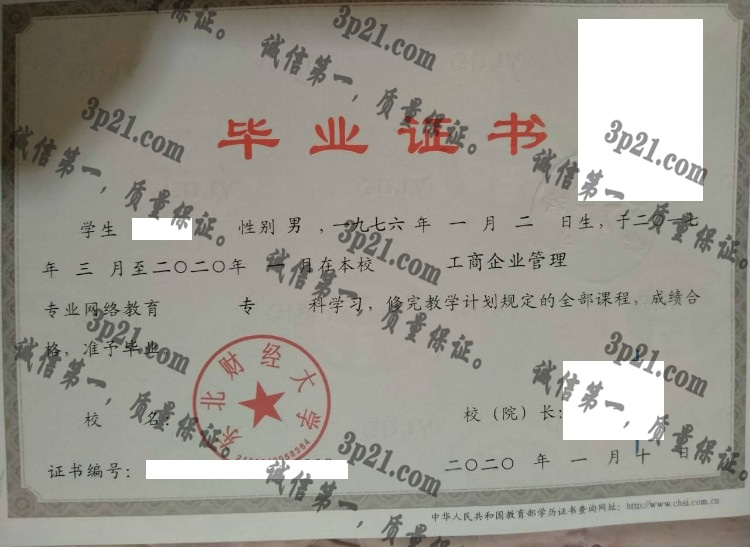 毕业证书
学生 性别 男 ，一九七六 年 一 月 二 日生，于二〇一七
年 三 月至二〇二〇年 一 月在本校 工商企业管理
专业网络教育 专 科学习，修完教学计划规定的全部课程，成绩合
格，准予毕业。
校 名：
东北财经大学
校（院）长：
证书编号：
二〇二〇 年 一 月 十 日
中华人民共和国教育部学历证书查询网址：http://www.chsi.com.cn
3p21.com
诚信第一，质量保证。
3p21.com
诚信第一，质量保证。
3p21.com
诚信第一，质量保证。
3p21.com
诚信第一，质量保证。
3p21.com
诚信第一，质量保证。
3p21.com
诚信第一，质量保证。
3p21.com
诚信第一，质量保证。